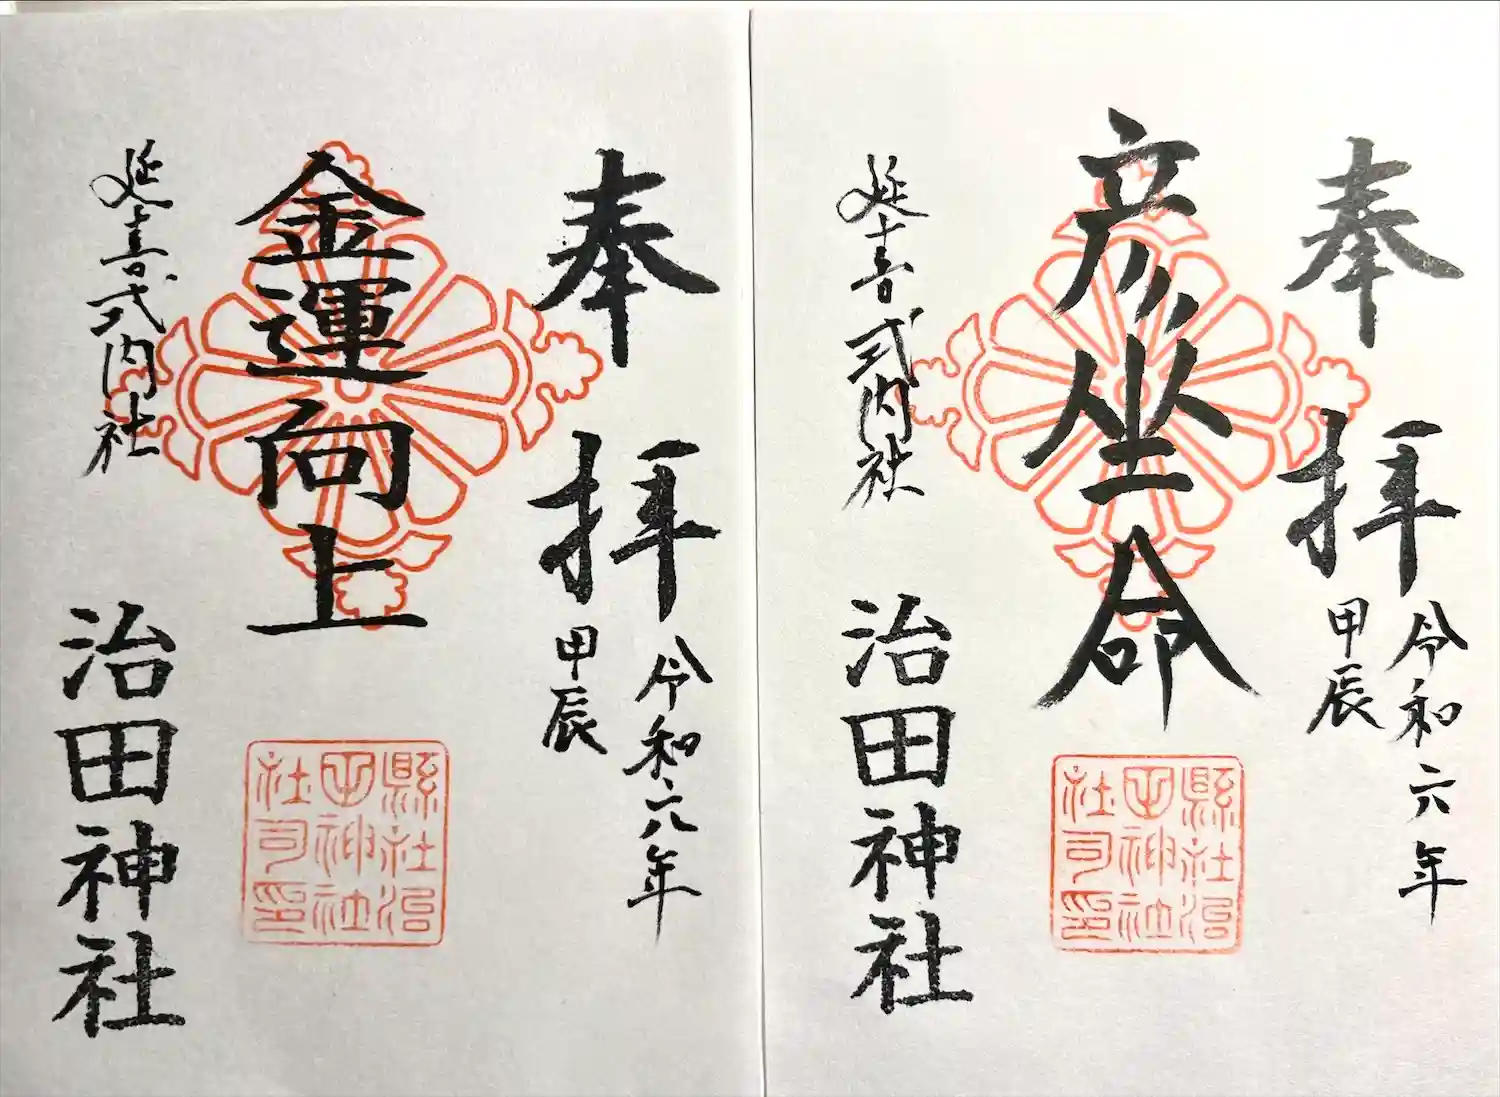 奉拝
令和六年
甲辰
彦坐命
縣社治
田神社
社司印
延喜式内社
治田神社
奉拝
令和六年
甲辰
金運向上
縣社治
田神社
社司印
延喜式内社
治田神社